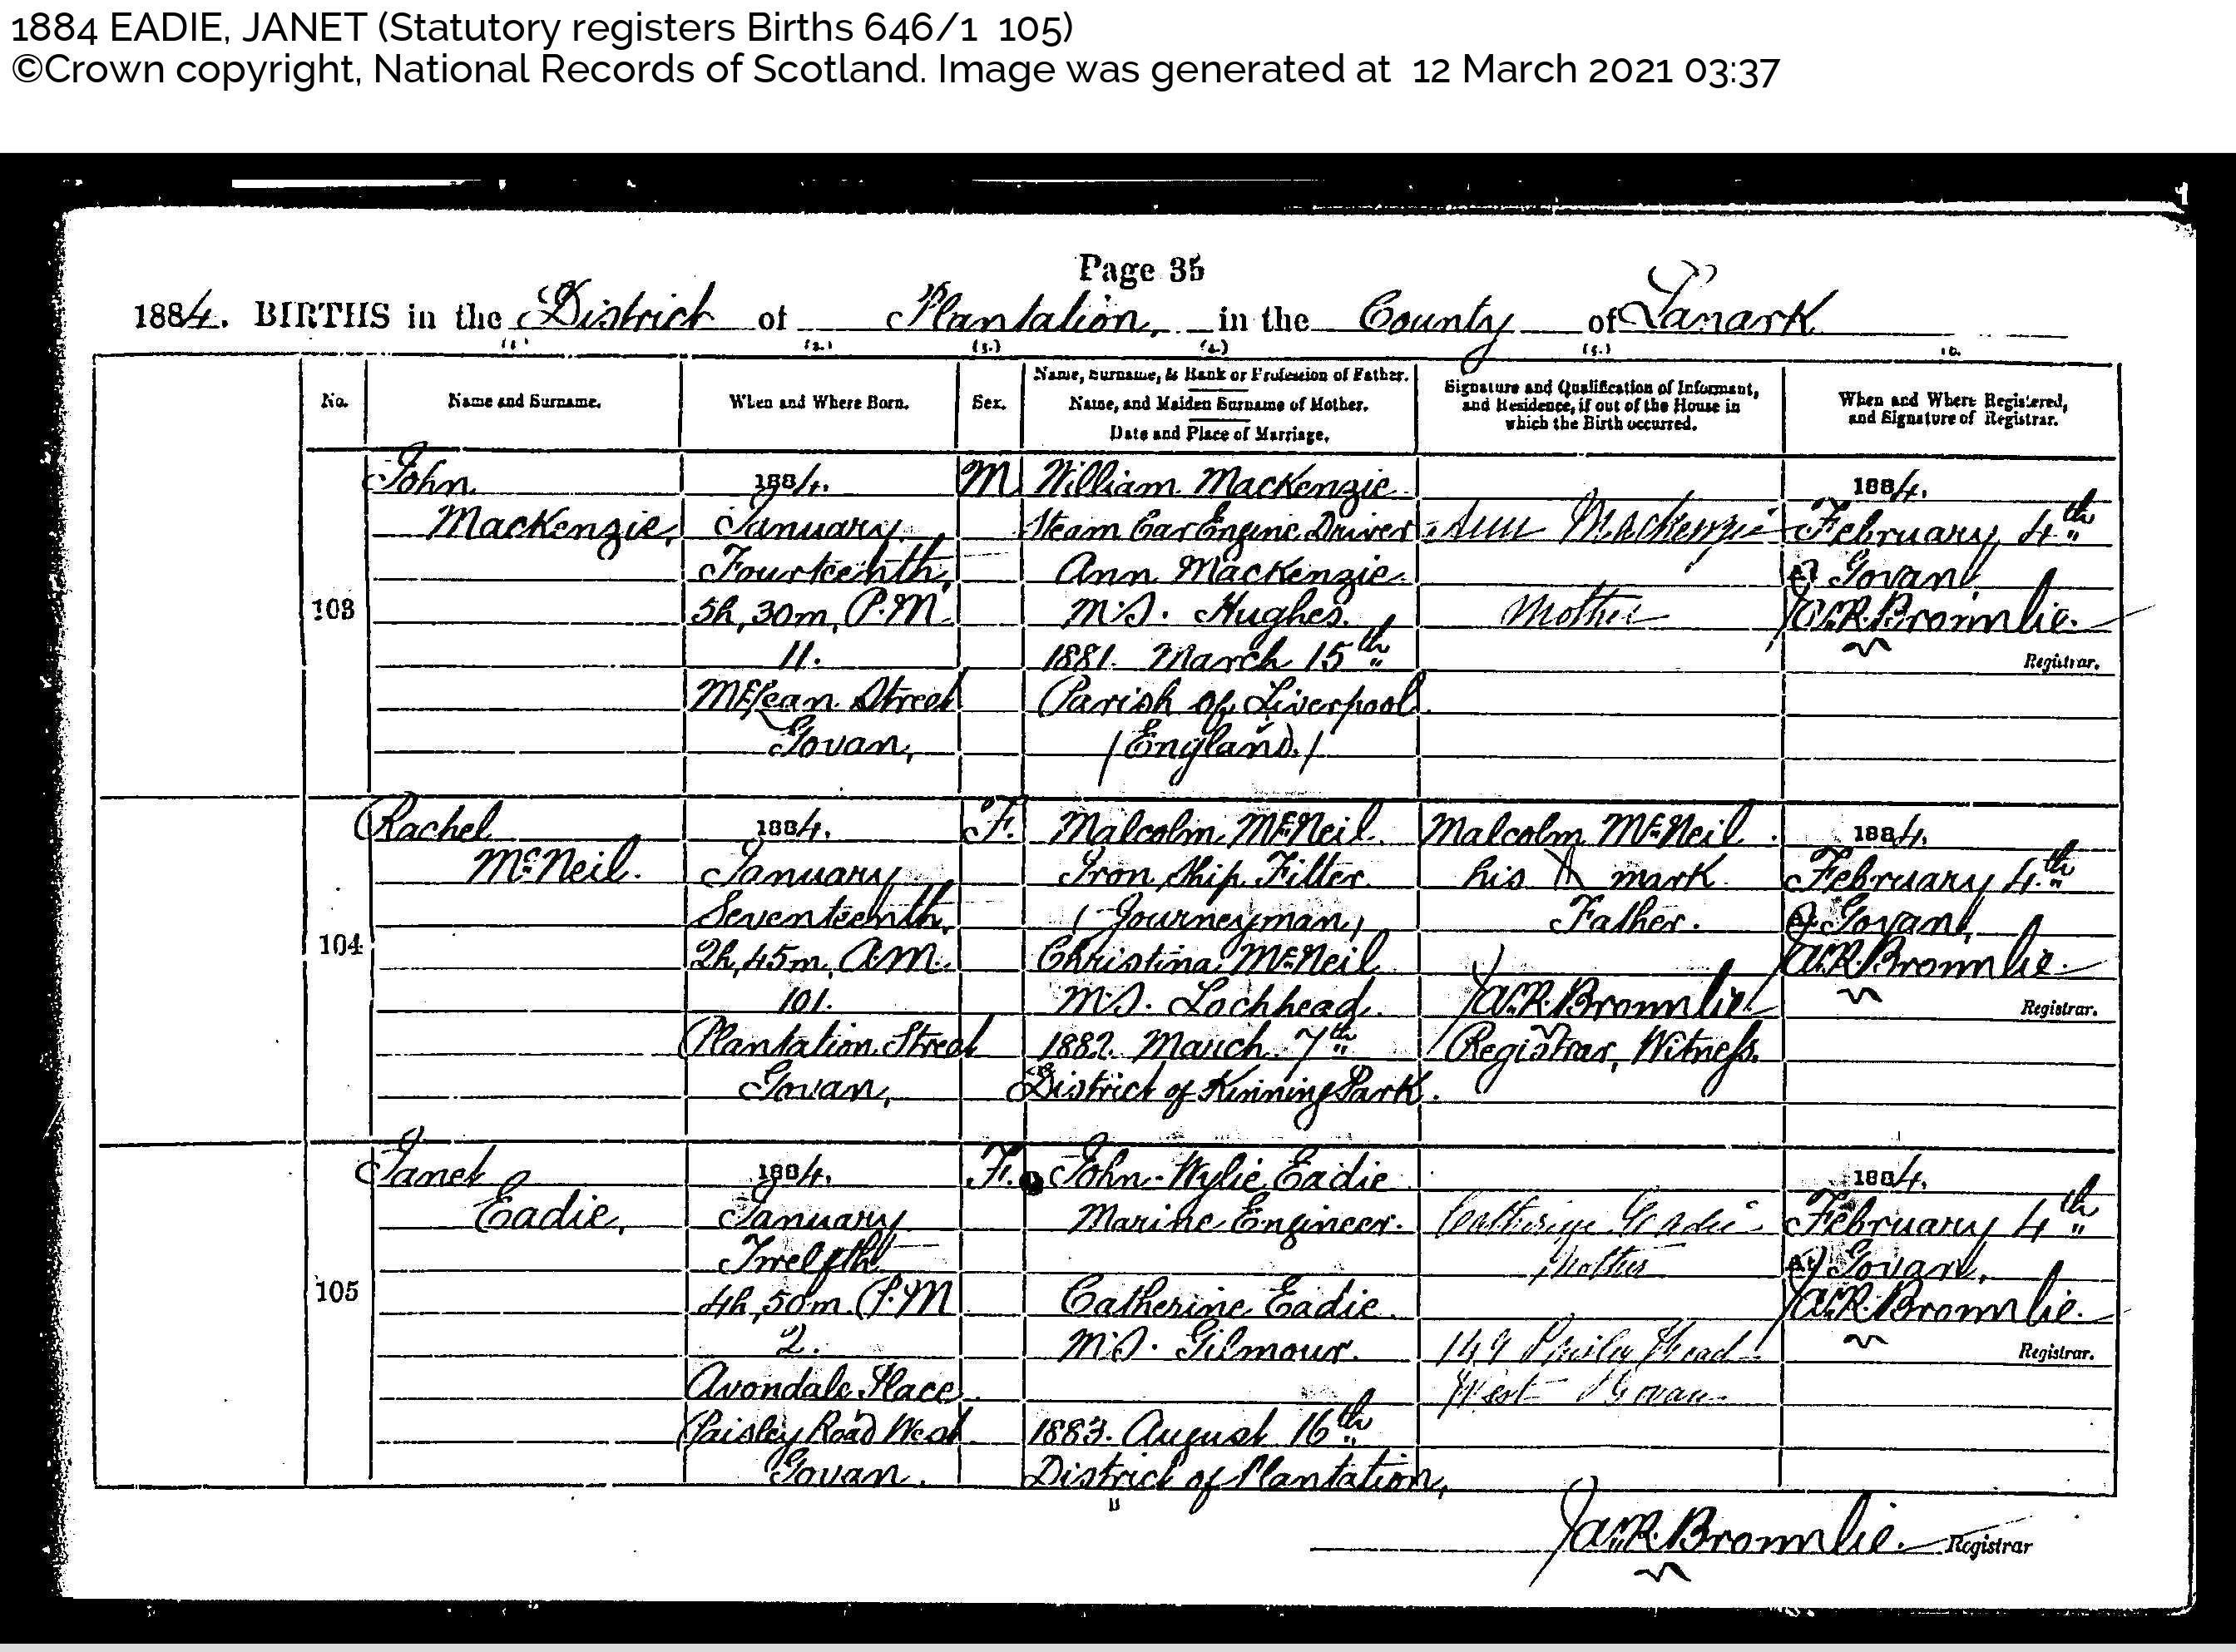 1884 EADIE, JANET (Statutory registers Births 646/1 105)
©Crown copyright, National Records of Scotland. Image was generated at 12 March 2021 03:37
Page 35
1884. BIRTHS in the District of Plantation, in the County of Lanark
(1.) (2.) (3.) (4.) (5.) (6.)
No.
Name and Surname.
When and Where Born.
Sex.
Name, Surname, & Rank or Profession of Father.
Name, and Maiden Surname of Mother.
Date and Place of Marriage.
Signature and Qualification of Informant,
and Residence, if out of the House in
which the Birth occurred.
When and Where Registered,
and Signature of Registrar.
103
John
Mackenzie,
1884.
January
Fourteenth,
5h, 30m, P.M.
11.
McLean Street
Govan,
M
William Mackenzie
Steam Car Engine Driver
Ann Mackenzie
M.S. Hughes.
1881. March 15th
Parish of Liverpool
(England.)
Ann Mackenzie
Mother
1884.
February 4th
Govan,
Jas. R. Brownlie.
Registrar.
104
Rachel
McNeil.
1884.
January
Seventeenth,
2h, 45m, A.M.
101.
Plantation Street
Govan,
F.
Malcolm McNeil.
Iron Ship Fitter.
(Journeyman)
Christina McNeil
M.S. Lochhead.
1882. March 7th
District of Kinning Park.
Malcolm McNeil
his mark
Father.
Jas. R. Brownlie
Registrar, Witness.
1884.
February 4th
Govan,
Jas. R. Brownlie.
Registrar.
105
Janet
Eadie,
1884.
January
Twelfth
4h, 50m. P.M
2.
Avondale Place
Paisley Road West
Govan.
F.
John Wylie Eadie
Marine Engineer.
Catherine Eadie
M.S. Gilmour.
1883. August 16th
District of Plantation,
Catherine G Eadie
Mother
149 Paisley Road
West Govan
1884.
February 4th
Govan,
Jas. R. Brownlie.
Registrar.
Jas. R. Brownlie. Registrar